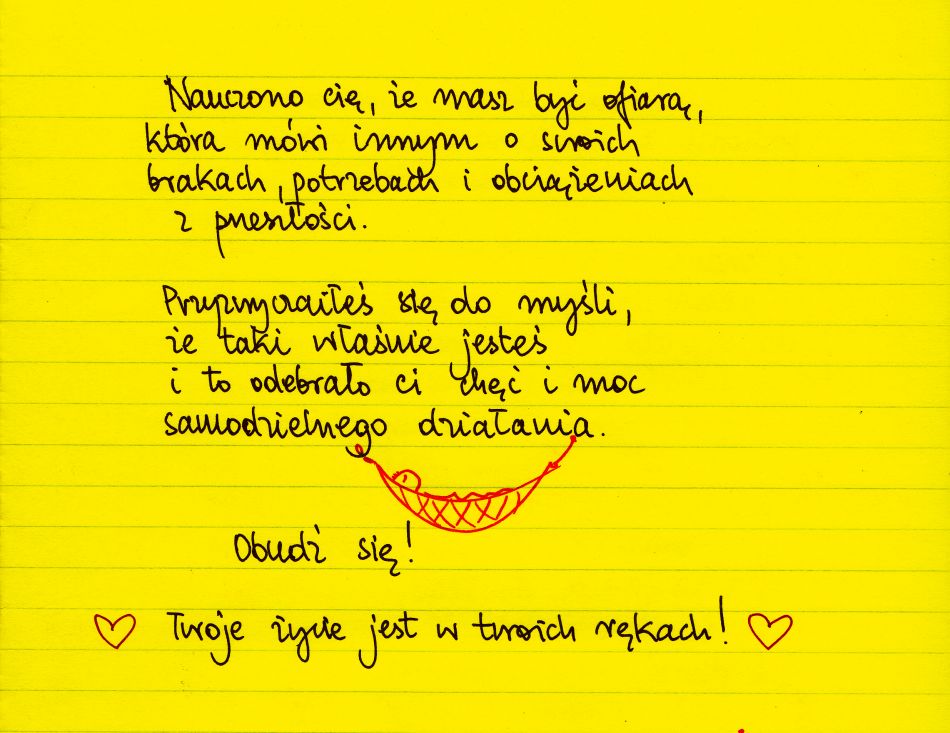 Nauczono cię, że masz być ofiarą,
która mówi innym o swoich
brakach, potrzebach i obciążeniach
z przeszłości.
Przyzwyczaiłeś się do myśli,
że taki właśnie jesteś
i to odebrało ci chęć i moc
samodzielnego działania.
Obudź się!
Twoje życie jest w twoich rękach!